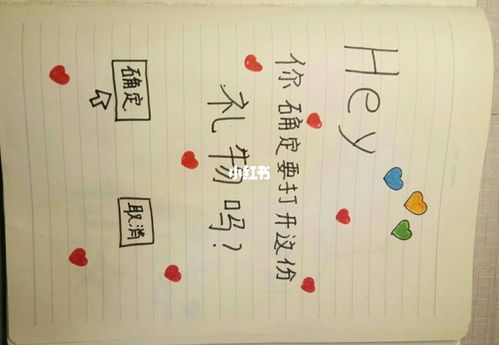 Hey
你确定要打开这份
礼物吗？
确定
取消
小红书